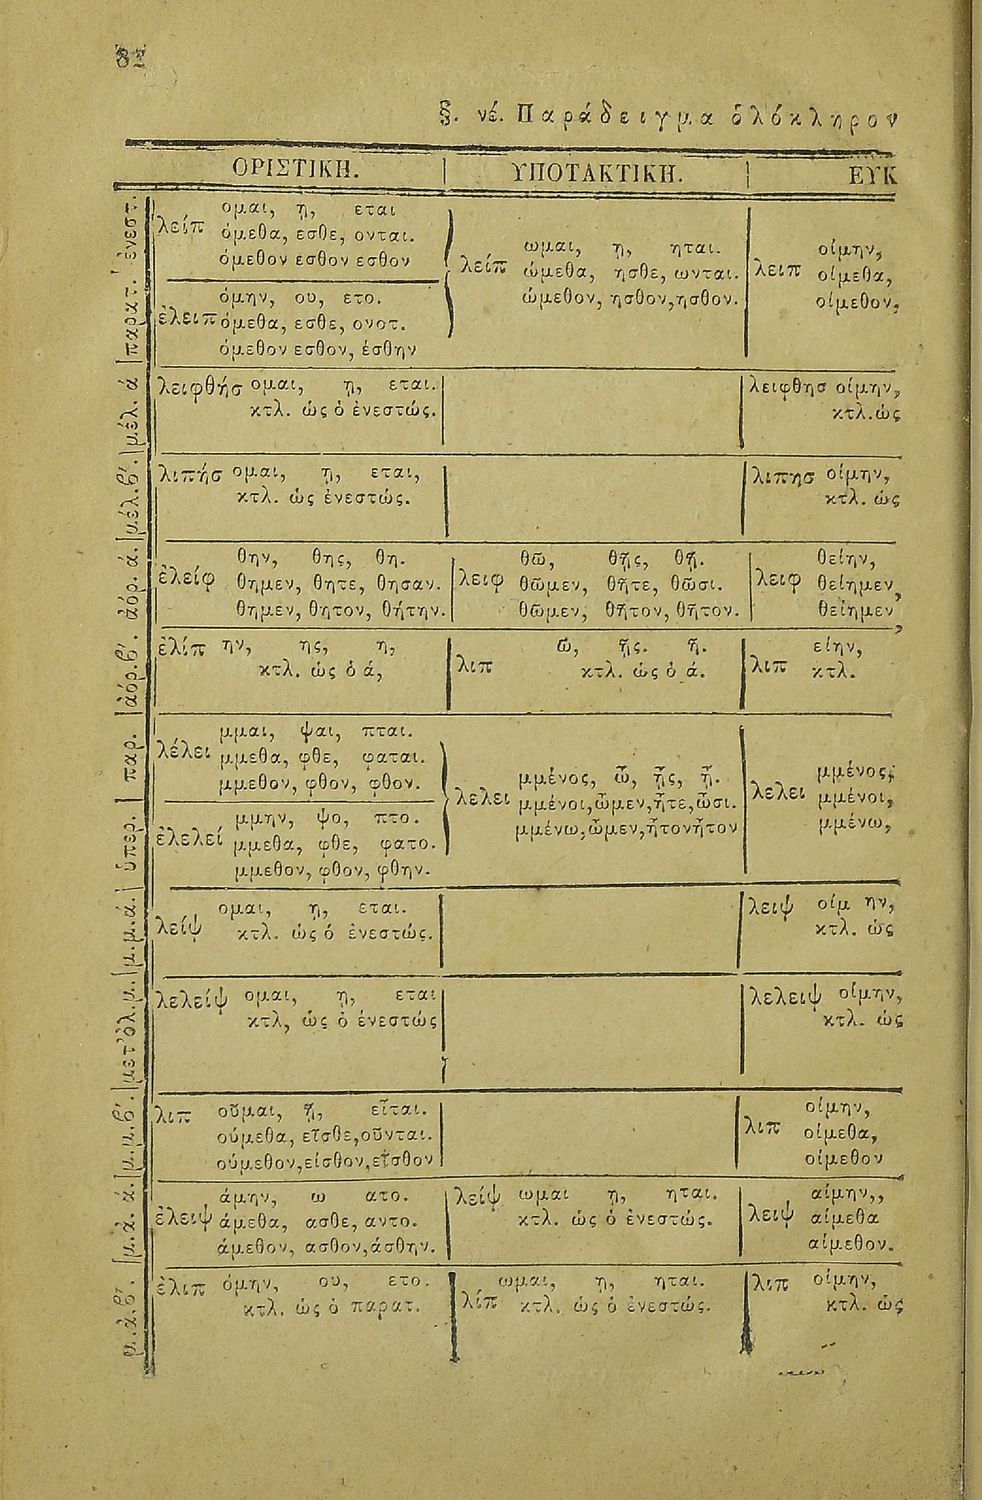 82
§. νέ. Παράδειγμα ὁλόκληρον
ΟΡΙΣΤΙΚΗ. | ΥΠΟΤΑΚΤΙΚΗ. | ΕΥΚ
παρατ. ἐνεστ.
λείπ ομαι, ῃ, εται
όμεθα, εσθε, ονται.
όμεθον εσθον εσθον
ἐλειπ όμην, ου, ετο.
όμεθα, εσθε, ονοτ.
όμεθον εσθον, έσθην
λείπ ωμαι, ῃ, ηται.
ώμεθα, ησθε, ωνται.
ώμεθον, ησθον,ησθον.
λειπ οίμην,
οίμεθα,
οίμεθον,
μέλ. ά
λειφθήσ ομαι, ῃ, εται.
κτλ. ὡς ὁ ἐνεστώς.
λειφθησ οίμην,
κτλ.ὡς
μέλ.β'.
λιπήσ ομαι, ῃ, εται,
κτλ. ὡς ἐνεστώς.
λιπησ οίμην,
κτλ. ὡς
ἀόρ. ά.
ἐλείφ θην, θης, θη.
θημεν, θητε, θησαν.
θημέν, θητον, θήτην.
λειφ θῶ, θῇς, θῇ.
θῶμεν, θῆτε, θῶσι.
θῶμεν, θῆτον, θῆτον.
λειφ θείην,
θείημεν,
θείημεν,
ἀόρ.β'.
ἐλίπ ην, ης, η,
κτλ. ὡς ὁ ά,
λιπ ῶ, ῇς. ῇ.
κτλ. ὡς ὁ ά.
λιπ είην,
κτλ.
ὑπερ. | παρ.
λέλει μμαι, ψαι, πται.
μμεθα, φθε, φαται.
μμεθον, φθον, φθον.
ἐλελεί μμην, ψο, πτο.
μμεθα, φθε, φατο.
μμεθον, φθον, φθην.
λελει μμένος, ὦ, ᾖς, ᾖ.
μμένοι,ὦμεν,ἦτε,ὦσι.
μμένω,ὦμεν,ἦτονἦτον
λελει μμένος,
μμένοι,
μμένω,
μ.μ.ά.
λείψ ομαι, ῃ, εται.
κτλ. ὡς ὁ ἐνεστώς.
λειψ οίμ ην,
κτλ. ὡς
μετ'ὀλ.μ.
λελείψ ομαι, ῃ, εται
κτλ, ὡς ὁ ἐνεστώς
λελειψ οίμην,
κτλ. ὡς
μ.μ.β'.
λιπ οῦμαι, ῇ, εῖται.
ούμεθα, εῖσθε,οῦνται.
ούμεθον,εῖσθον,εῖσθον
λιπ οίμην,
οίμεθα,
οίμεθον
μ.ἀ. ά.
ἐλειψ άμην, ω ατο.
άμεθα, ασθε, αντο.
άμεθον, ασθον,άσθην.
λείψ ωμαι ῃ, ηται.
κτλ. ὡς ὁ ἐνεστώς.
λειψ αίμην,,
αίμεθα
αίμεθον.
μ.ἀ.β'.
ἐλιπ όμην, ου, ετο.
κτλ. ὡς ὁ παρατ.
λίπ ωμαι, ῃ, ηται.
κτλ. ὡς ὁ ἐνεστώς.
λιπ οίμην,
κτλ. ὡς